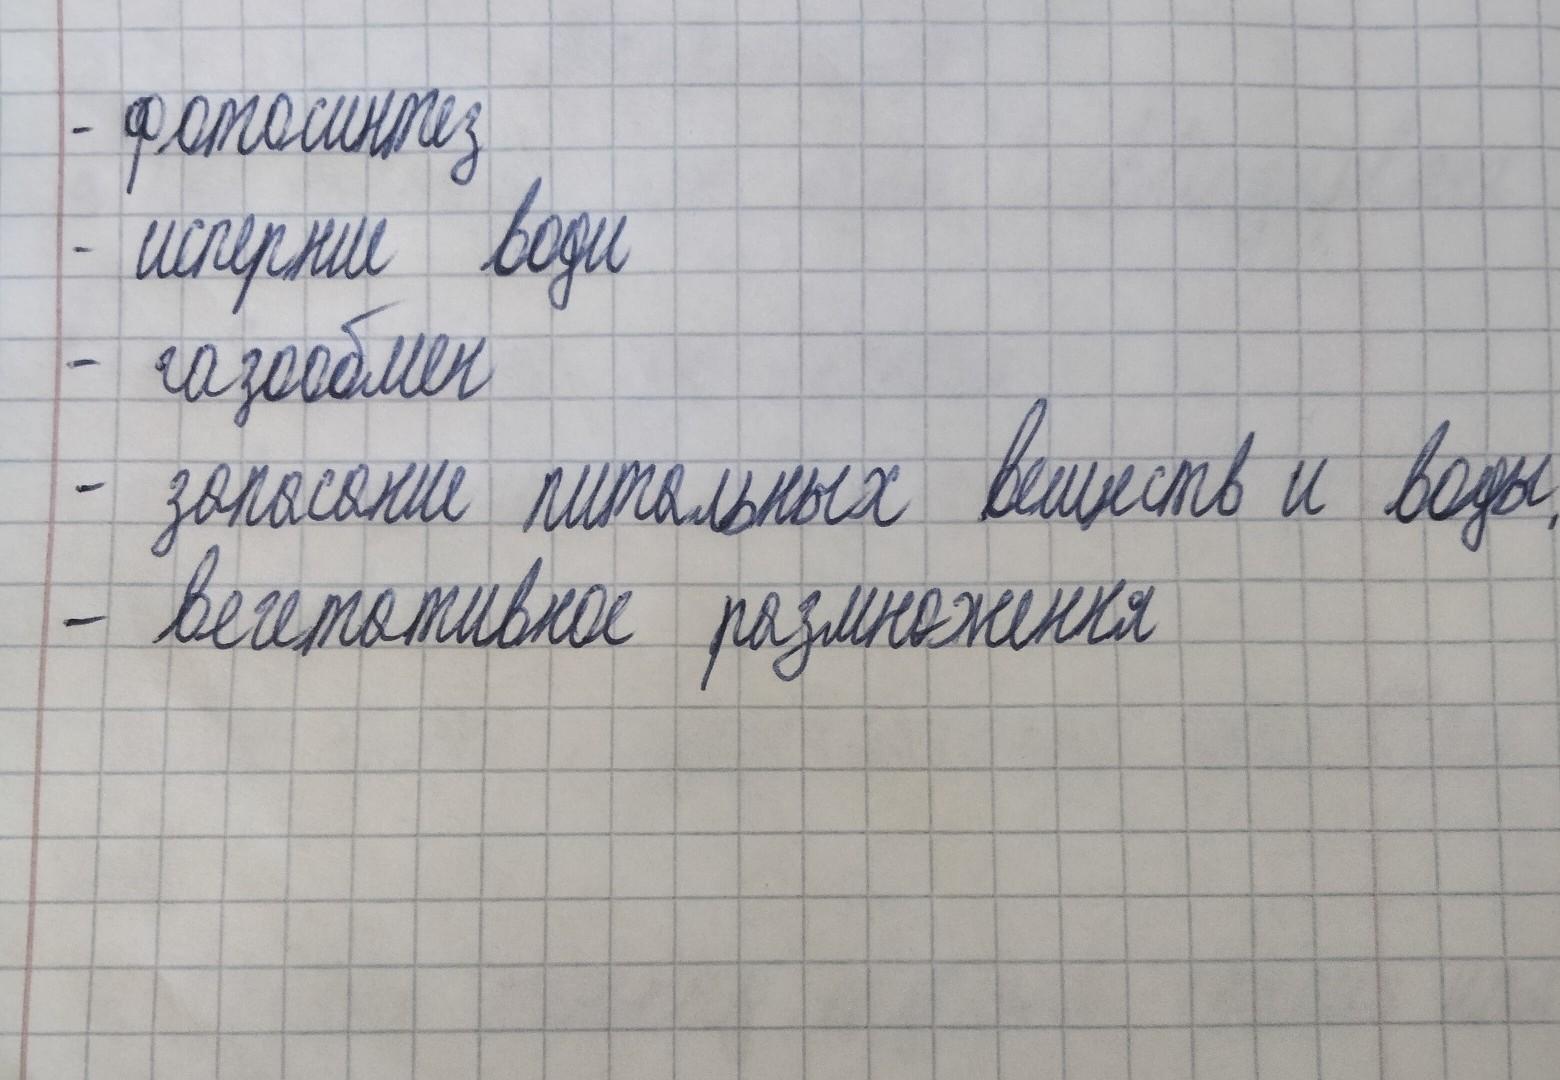 - фотосинтез
- исперние води
- газообмен
- запасание питальных веществ и воды,
- вегетативное размноження